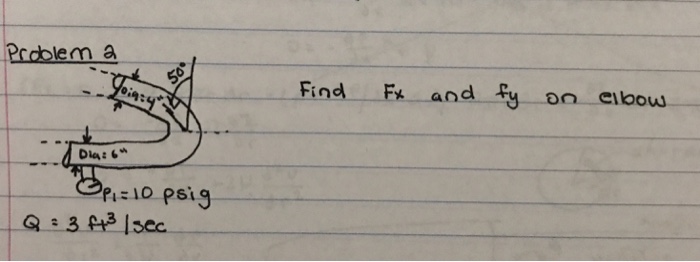 Problem 2
50°
Dia=4"
Find Fx and fy on elbow
Dia=6"
P₁=10 psig
Q = 3 ft³/sec